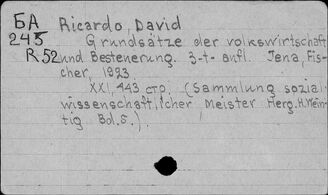 БА Ricardo, David
245 Grundsätze der volkswirtschaft
R52 und Besteuerung. 3-t- aufl. Jena, Fis-
cher, 1923.
XXI, 443 стр. (Sammlung sozial-
wissenschaftlicher Meister Herg. H. Wein-
tig Bd. 5.).